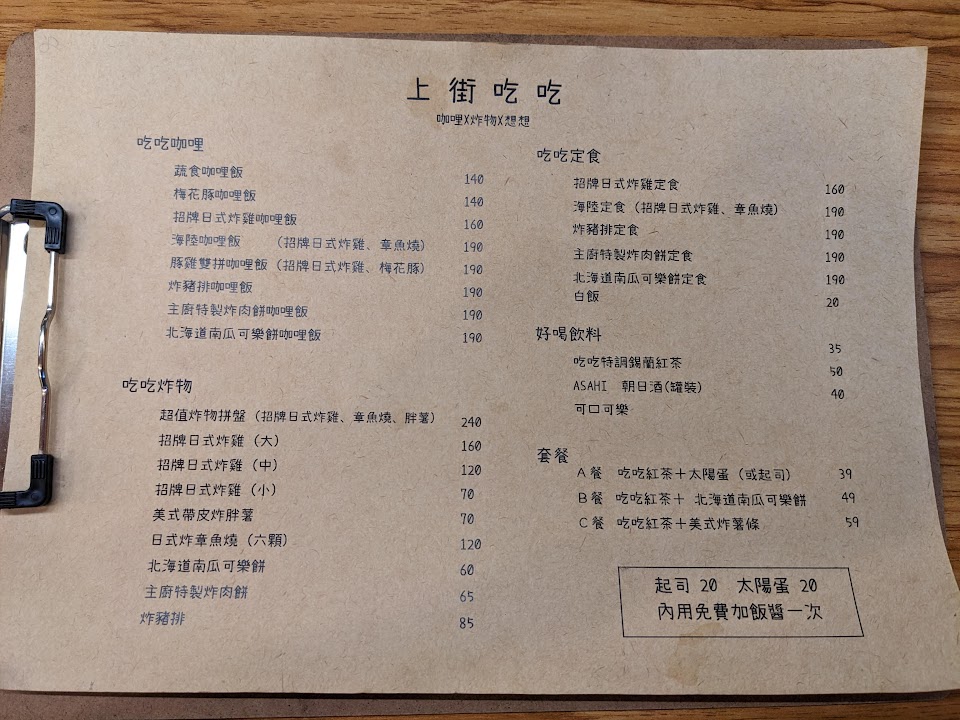 上街吃吃
咖哩X炸物X想想
吃吃咖哩
蔬食咖哩飯 140
梅花豚咖哩飯 140
招牌日式炸雞咖哩飯 160
海陸咖哩飯 (招牌日式炸雞、章魚燒) 190
豚雞雙拼咖哩飯 (招牌日式炸雞、梅花豚) 190
炸豬排咖哩飯 190
主廚特製炸肉餅咖哩飯 190
北海道南瓜可樂餅咖哩飯 190
吃吃炸物
超值炸物拼盤 (招牌日式炸雞、章魚燒、胖薯) 240
招牌日式炸雞 (大) 160
招牌日式炸雞 (中) 120
招牌日式炸雞 (小) 70
美式帶皮炸胖薯 70
日式炸章魚燒 (六顆) 120
北海道南瓜可樂餅 60
主廚特製炸肉餅 65
炸豬排 85
吃吃定食
招牌日式炸雞定食 160
海陸定食 (招牌日式炸雞、章魚燒) 190
炸豬排定食 190
主廚特製炸肉餅定食 190
北海道南瓜可樂餅定食 190
白飯 20
好喝飲料
吃吃特調錫蘭紅茶 35
ASAHI 朝日酒(罐裝) 50
可口可樂 40
套餐
A餐 吃吃紅茶+太陽蛋 (或起司) 39
B餐 吃吃紅茶+ 北海道南瓜可樂餅 49
C餐 吃吃紅茶+美式炸薯條 59
起司 20 太陽蛋 20
內用免費加飯醬一次